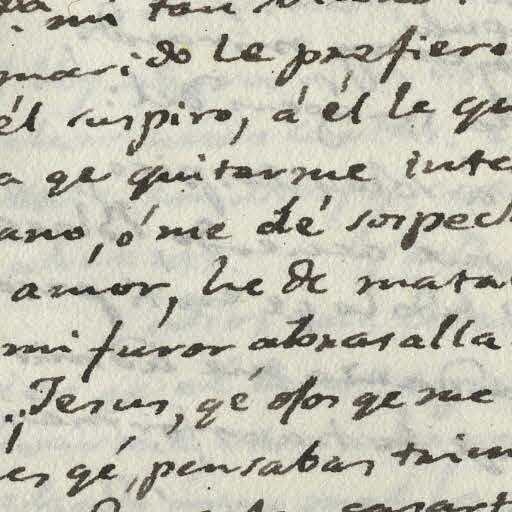 mi tan
marido le prefiero
él suspiro, á él le qu
a qe quitarme inte
ano, ó me dé sospech
amor, he de mata
mi furor abrasalla
¡Jesus, qé ojos qe me
es qé, pensabas
casart